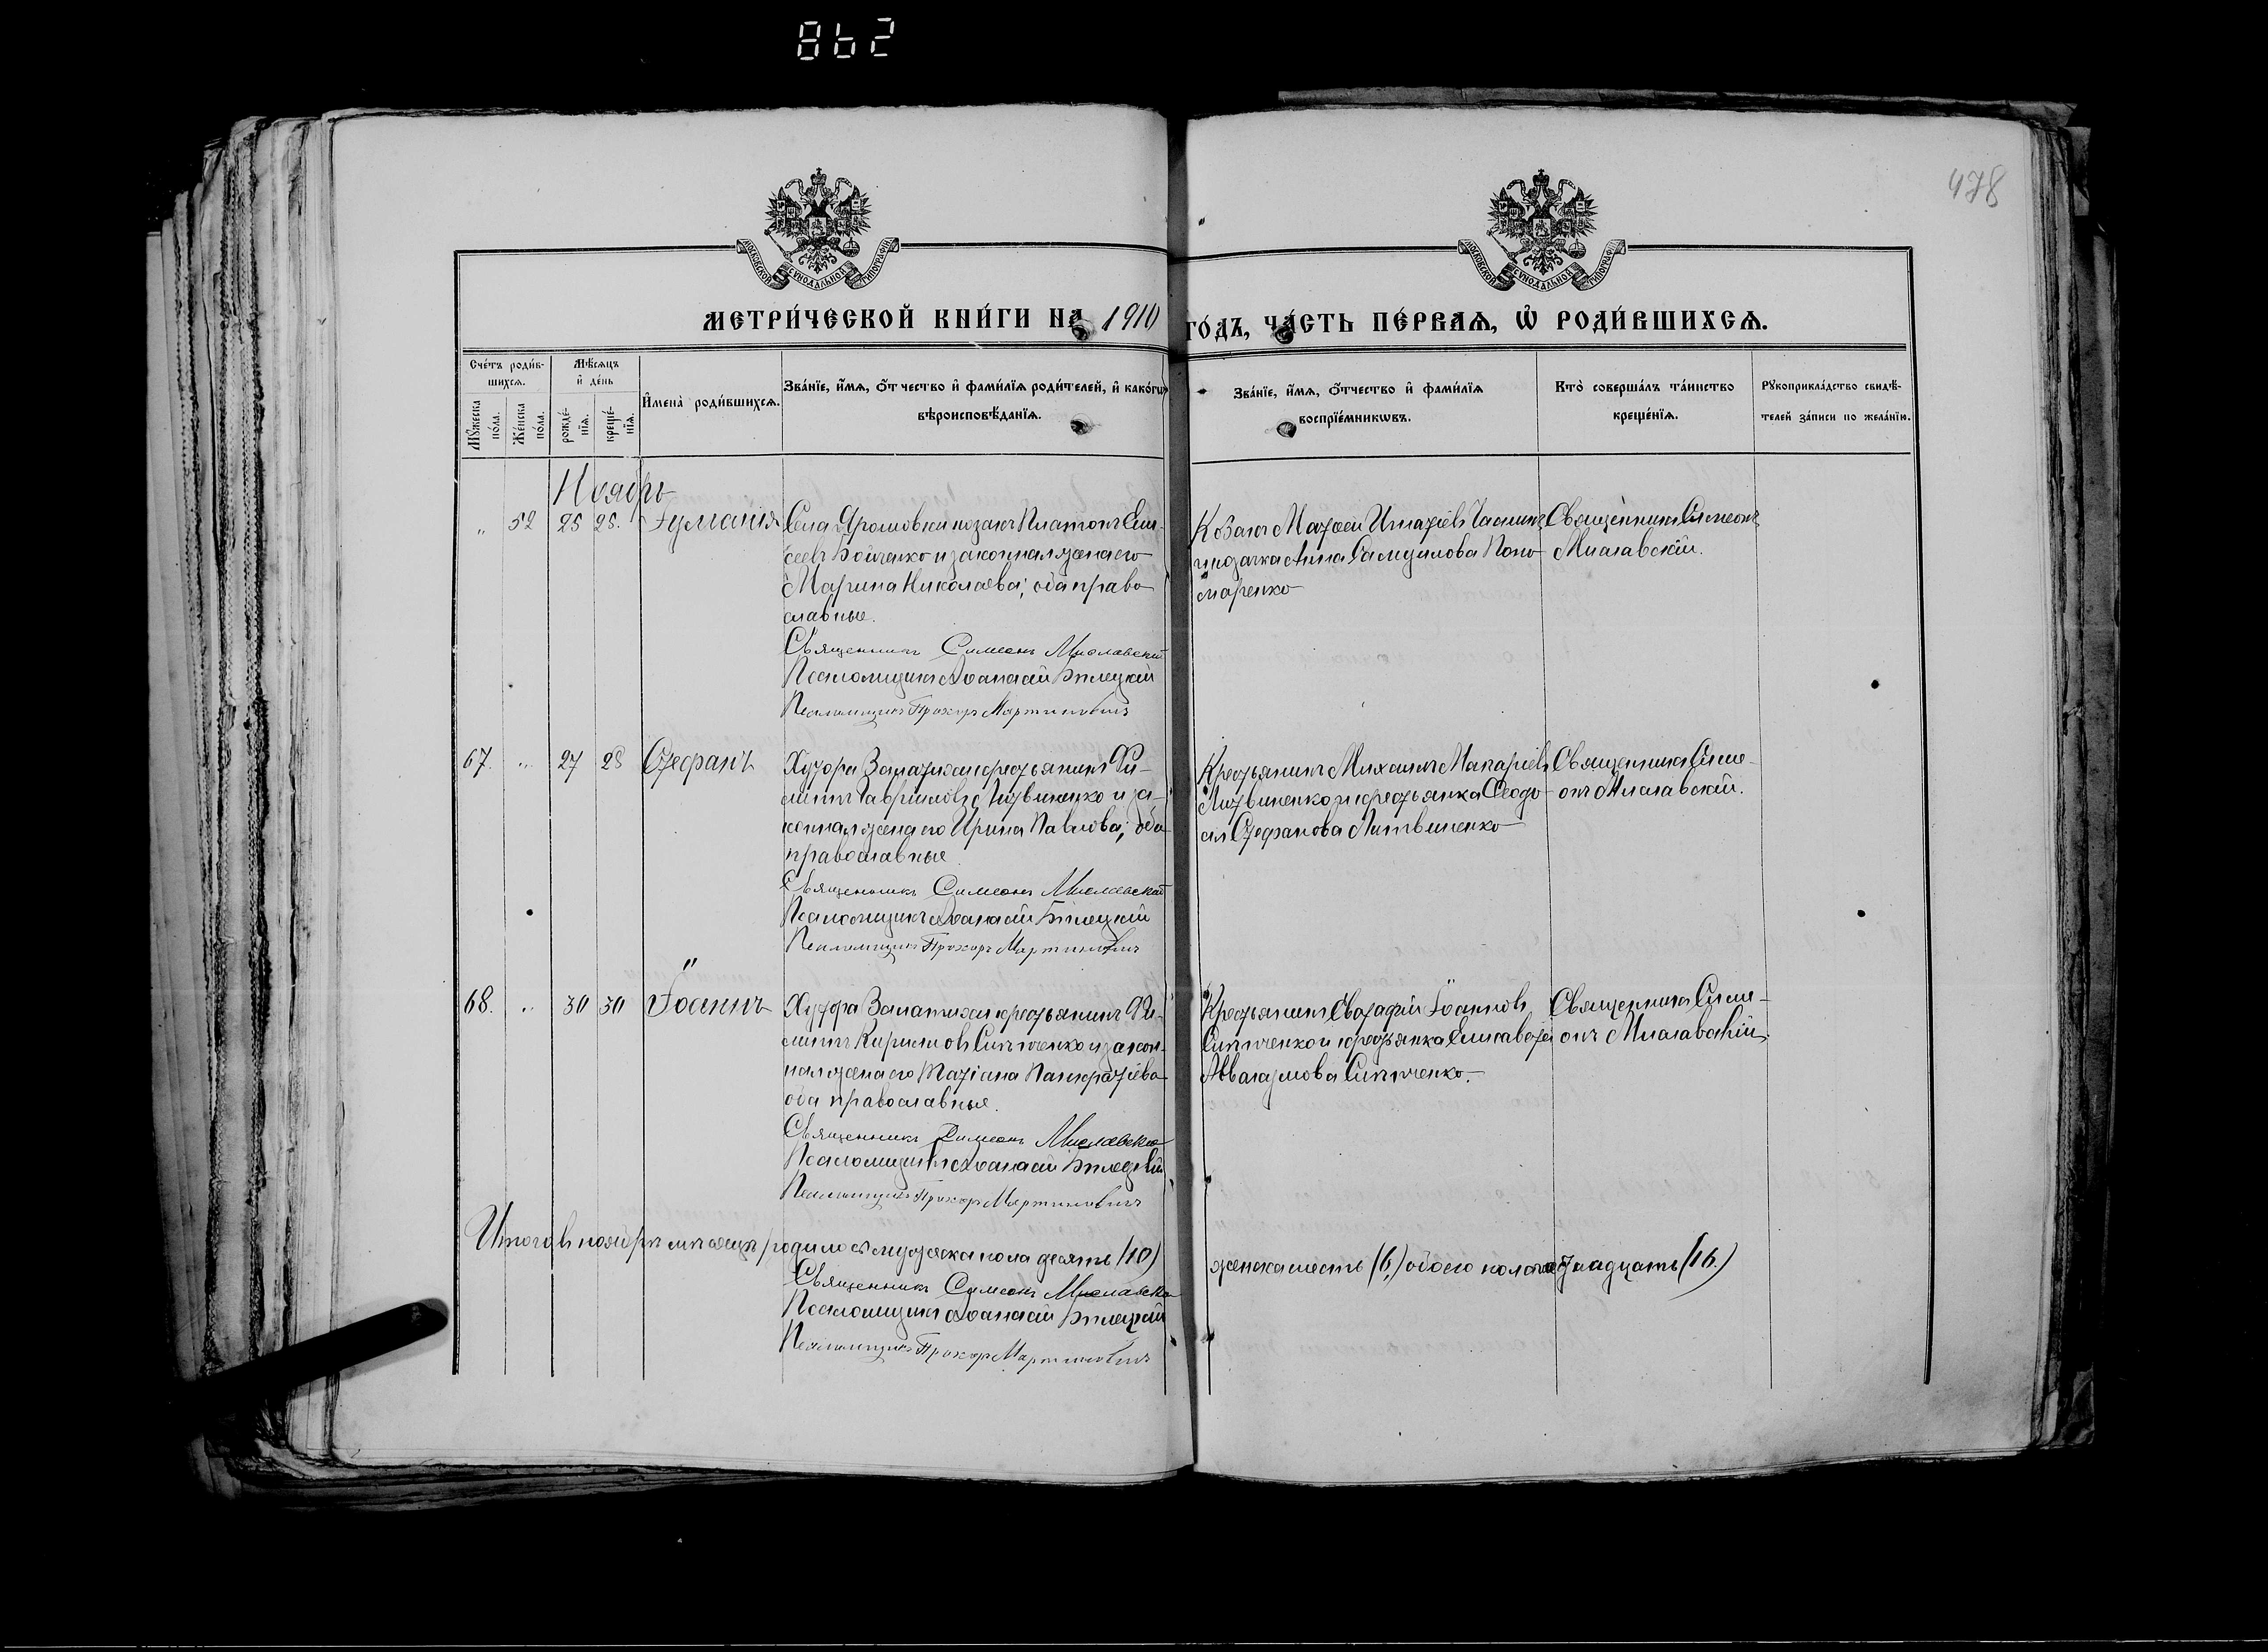 862
478
МОСКОВСКОЙ СѴНОДАЛЬНОЙ ТИПОГРАФІИ
МОСКОВСКОЙ СѴНОДАЛЬНОЙ ТИПОГРАФІИ
МЕТРИ́ЧЕСКОЙ КНИ́ГИ НА 1910 ГО́ДЪ, ЧА́СТЬ ПЕ́РВАѦ, Ѡ РОДИ́ВШИХСѦ.
Сче́тъ роди́в-
шихсѧ.
Мꙋ́жеска по́ла.
Же́нска по́ла.
Мѣ́сѧцъ
и҆ де́нь
рожде́-
нїѧ.
креще́-
нїѧ.
И҆мена̀ роди́вшихсѧ.
Зва́нїе, и҆́мѧ, ѻ҆́тчество и҆ фами́лїѧ роди́телей, и҆ како́гѡ
вѣроисповѣ́данїѧ.
Зва́нїе, и҆́мѧ, ѻ҆́тчество и҆ фами́лїѧ
воспрїе́мникѡвъ.
Кто̀ соверша́лъ та́инство
креще́нїѧ.
Рꙋкоприкла́дство свидѣ́-
телей за́писи по жела́нїю.
Ноябрь
„ 52 25 25. Іуліанія
Села Ярошовки козакъ Платонъ Ели-
сеевъ Бойченко и законная жена его
Марина Николаева; оба право
славные.
Священникъ Симеонъ Миславскій
Псаломщикъ Аѳанасій Бѣлецкій
Псаломщикъ Прохоръ Мартиновичъ
Козакъ Матѳей Игнатіевъ
и козачка Анна Самуилова Поно
маренко
Священникъ Симеонъ
Миславскій.
67. „ 27 28 Стефанъ
Хутора Залатихи крестьянинъ Фи-
липпъ Гавриловъ Литвиненко и за-
конная жена его Ирина Павлова; оба
православные.
Священникъ Симеонъ Миславскій
Псаломщикъ Аѳанасій Бѣлецкій
Псаломщикъ Прохоръ Мартиновичъ
Крестьянинъ Михаилъ Макаріевъ
Литвиненко и крестьянка Ѳеодо
сія Стефанова Литвиненко
Священникъ Симе-
онъ Миславскій.
68. „ 30 30 Іоаннъ
Хутора Залатихи крестьянинъ Фи-
липпъ Кириловъ Ситниченко и закон-
ная жена его Татіана Панкратіева
оба православные.
Священникъ Симеонъ Миславскій
Псаломщикъ Аѳанасій Бѣлецкій
Псаломщикъ Прохоръ Мартиновичъ
Крестьянинъ Евстафій Іоанновъ
Ситниченко и крестьянка Елисавета
Ситниченко.
Священникъ Симе-
онъ Миславскій.
Итого въ ноябрѣ мѣсяцѣ родилось мужеска пола десять (10) женска шесть (6,) обоего пола шестнадцать (16.)
Священникъ Симеонъ Миславскій
Псаломщикъ Аѳанасій Бѣлецкій
Псаломщикъ Прохоръ Мартиновичъ